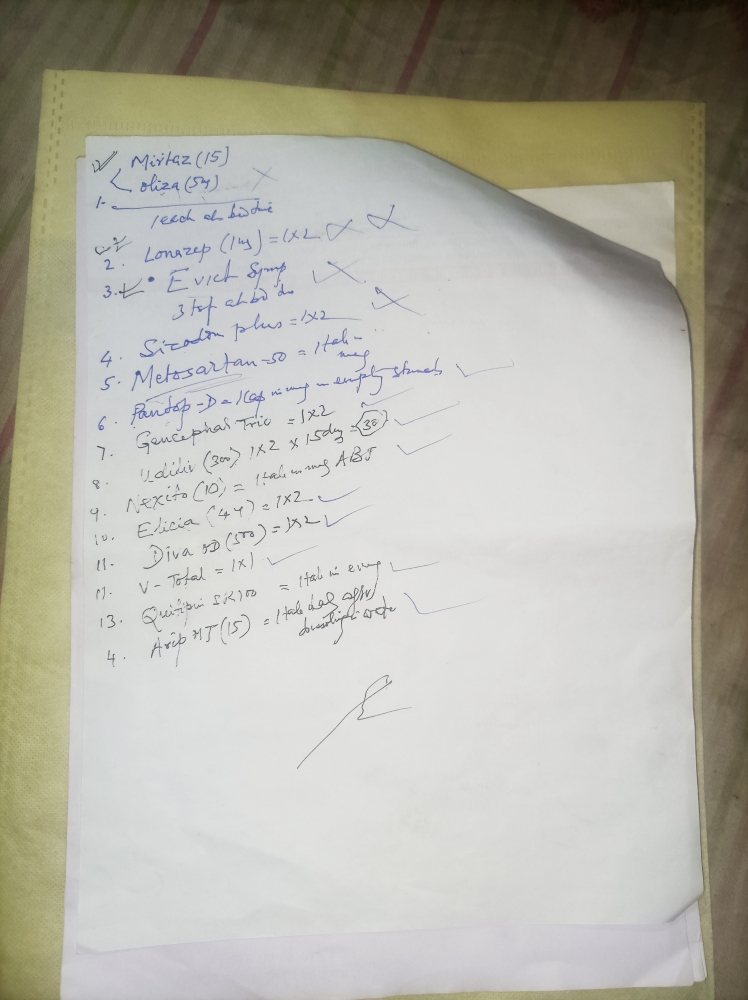 Mirtaz (15)
Oliza (5mg)
1.
1 each at bed time
2. Lonazep (1mg) = 1x2
3. Evict Syrup
3 tsf at bed
4. Sizodon plus = 1x2
5. Metosartan-50 = 1 tab in
mng
6. Pantop-D = 1 cap in mng in empty stomach
7. Gencephal Trio = 1x2
8. Udiliv (300) 1x2 x 15 day = 30
9. Nexito (10) = 1 tab in mng ABF
10. = 1x2
11. Diva OD (500) = 1x2
11. V-Total = 1x1
13. Quitipin SR = 1 tab in
4. Arip MT (15) = 1 tab